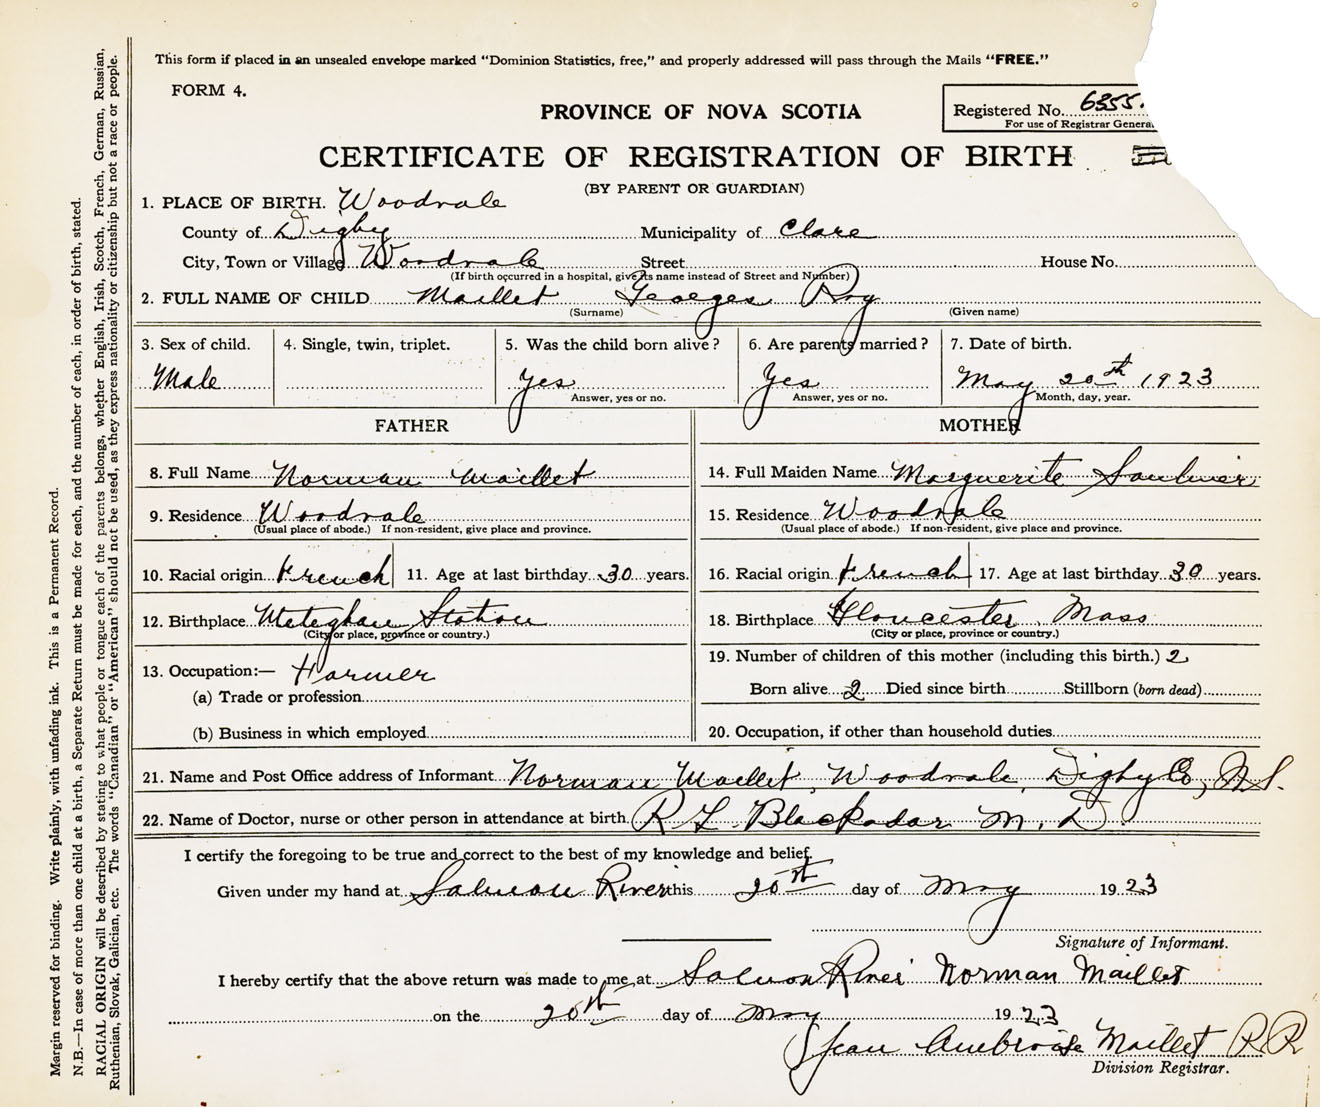 This form if placed in an unsealed envelope marked "Dominion Statistics, free," and properly addressed will pass through the Mails "FREE."
FORM 4.
PROVINCE OF NOVA SCOTIA
Registered No. 6355
For use of Registrar Genera
CERTIFICATE OF REGISTRATION OF BIRTH
(BY PARENT OR GUARDIAN)
1. PLACE OF BIRTH. Woodvale
County of Digby Municipality of Clare
City, Town or Village Woodvale Street House No.
(If birth occurred in a hospital, give its name instead of Street and Number)
2. FULL NAME OF CHILD Maillet Georges Roy
(Surname) (Given name)
3. Sex of child. 4. Single, twin, triplet. 5. Was the child born alive? 6. Are parents married? 7. Date of birth.
Male Yes Yes May 20th 1923
Answer, yes or no. Answer, yes or no. Month, day, year.
FATHER MOTHER
8. Full Name Norman Maillet 14. Full Maiden Name Marguerite Saulnier
9. Residence Woodvale 15. Residence Woodvale
(Usual place of abode.) If non-resident, give place and province. (Usual place of abode.) If non-resident, give place and province.
10. Racial origin French 11. Age at last birthday 30 years. 16. Racial origin French 17. Age at last birthday 30 years.
12. Birthplace Meteghan Station 18. Birthplace Gloucester, Mass
(City or place, province or country.) (City or place, province or country.)
13. Occupation:— Farmer 19. Number of children of this mother (including this birth.) 2
(a) Trade or profession Born alive 2 Died since birth Stillborn (born dead)
(b) Business in which employed 20. Occupation, if other than household duties
21. Name and Post Office address of Informant Norman Maillet, Woodvale, Digby Co, N.S.
22. Name of Doctor, nurse or other person in attendance at birth. R L Blackadar M. D.
I certify the foregoing to be true and correct to the best of my knowledge and belief.
Given under my hand at Salmon River this 20th day of May 1923
Signature of Informant.
I hereby certify that the above return was made to me at Salmon River Norman Maillet
on the 20th day of May 1923
Jean Ambroise Maillet R R
Division Registrar.
Margin reserved for binding. Write plainly, with unfading ink. This is a Permanent Record.
N.B.—In case of more than one child at a birth, a Separate Return must be made for each, and the number of each, in order of birth, stated.
RACIAL ORIGIN will be described by stating to what people or tongue each of the parents belongs, whether English, Irish, Scotch, French, German, Russian,
Ruthenian, Slovak, Galician, etc. The words "Canadian" or "American" should not be used, as they express nationality or citizenship but not a race or people.